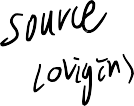 source
(origin)